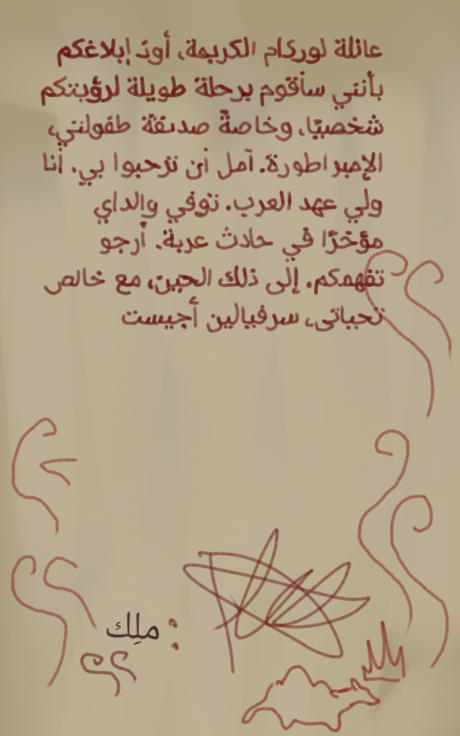 عائلة لوركام الكريمة، أودّ إبلاغكم
بأنني سأقوم برحلة طويلة لرؤيتكم
شخصيًا، وخاصةً صديقة طفولتي،
الإمبراطورة. آمل أن ترحبوا بي. أنا
ولي عهد العرب. توفي والداي
مؤخرًا في حادث عربة. أرجو
تفهمكم. إلى ذلك الحين، مع خالص
تحياتي، سرفيالين أجيست
ملِك :